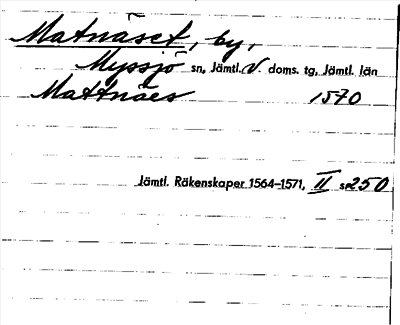 Matnäset, by,
Myssjö sn, Jämtl. V. doms. tg, Jämtl. län
Mattnäes 1570
Jämtl. Räkenskaper 1564–1571, II s 250